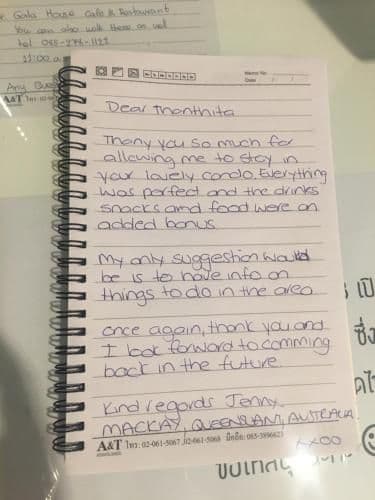 Gala House Cafe & Restaurant
You can also walk there as well
tel 085-276-1122
11:00 a
Any Que
A&T โทร. 02-0
Memo No.
Date / /
Dear Thanthita
Thany you so much for
allowing me to stay in
your lovely condo. Everything
was perfect and the drinks
snacks and food were an
added bonus.
My only suggestion would
be is to have info on
things to do in the area
once again, thank you and
I look forward to comming
back in the future
Kind regards Jenny
MACKAY, QUEENSLAND, AUSTRALIA
xxoo
A&T โทร: 02-061-5067 ,02-061-5068 มือถือ: 085-3896623